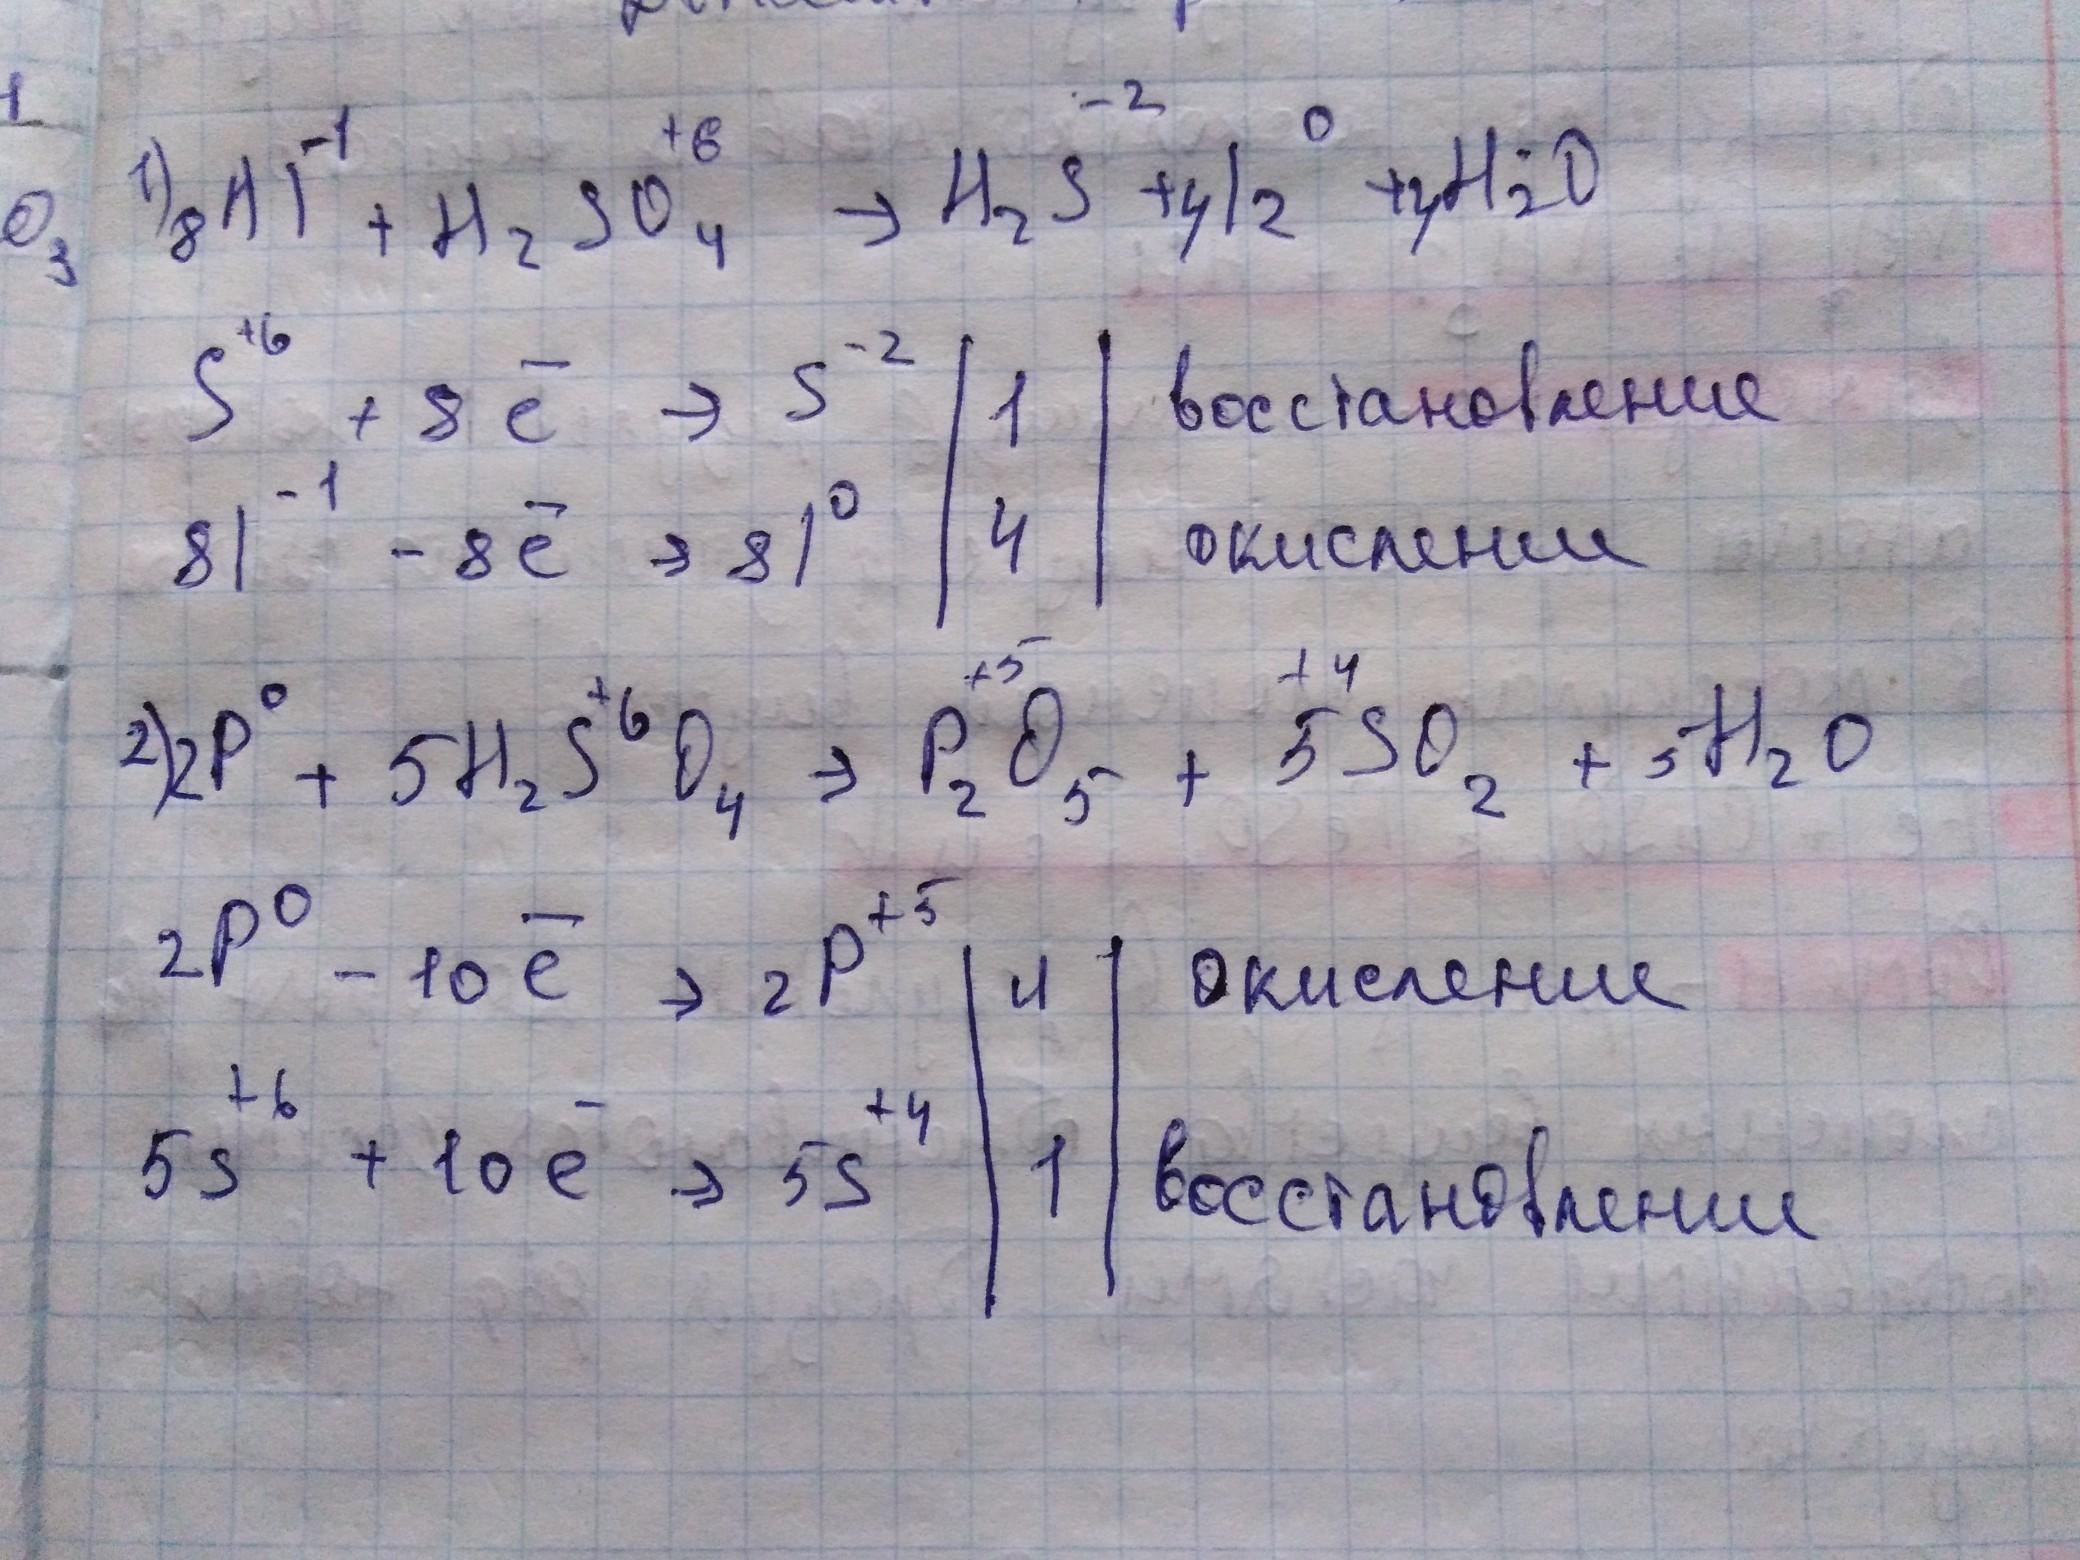 1
O3
1) 8HI⁻¹ + H₂SO₄⁺⁶ → H₂S⁻² + 4I₂⁰ + 4H₂O
S⁺⁶ + 8e̅ → S⁻² | 1 | восстановление
8I⁻¹ - 8e̅ → 8I⁰ | 4 | окисление
2) 2P⁰ + 5H₂S⁺⁶O₄ → P₂⁺⁵O₅ + 5S⁺⁴O₂ + 5H₂O
2P⁰ - 10e̅ → 2P⁺⁵ | | окисление
5s⁺⁶ + 10e̅ → 5s⁺⁴ | 1 | восстановление